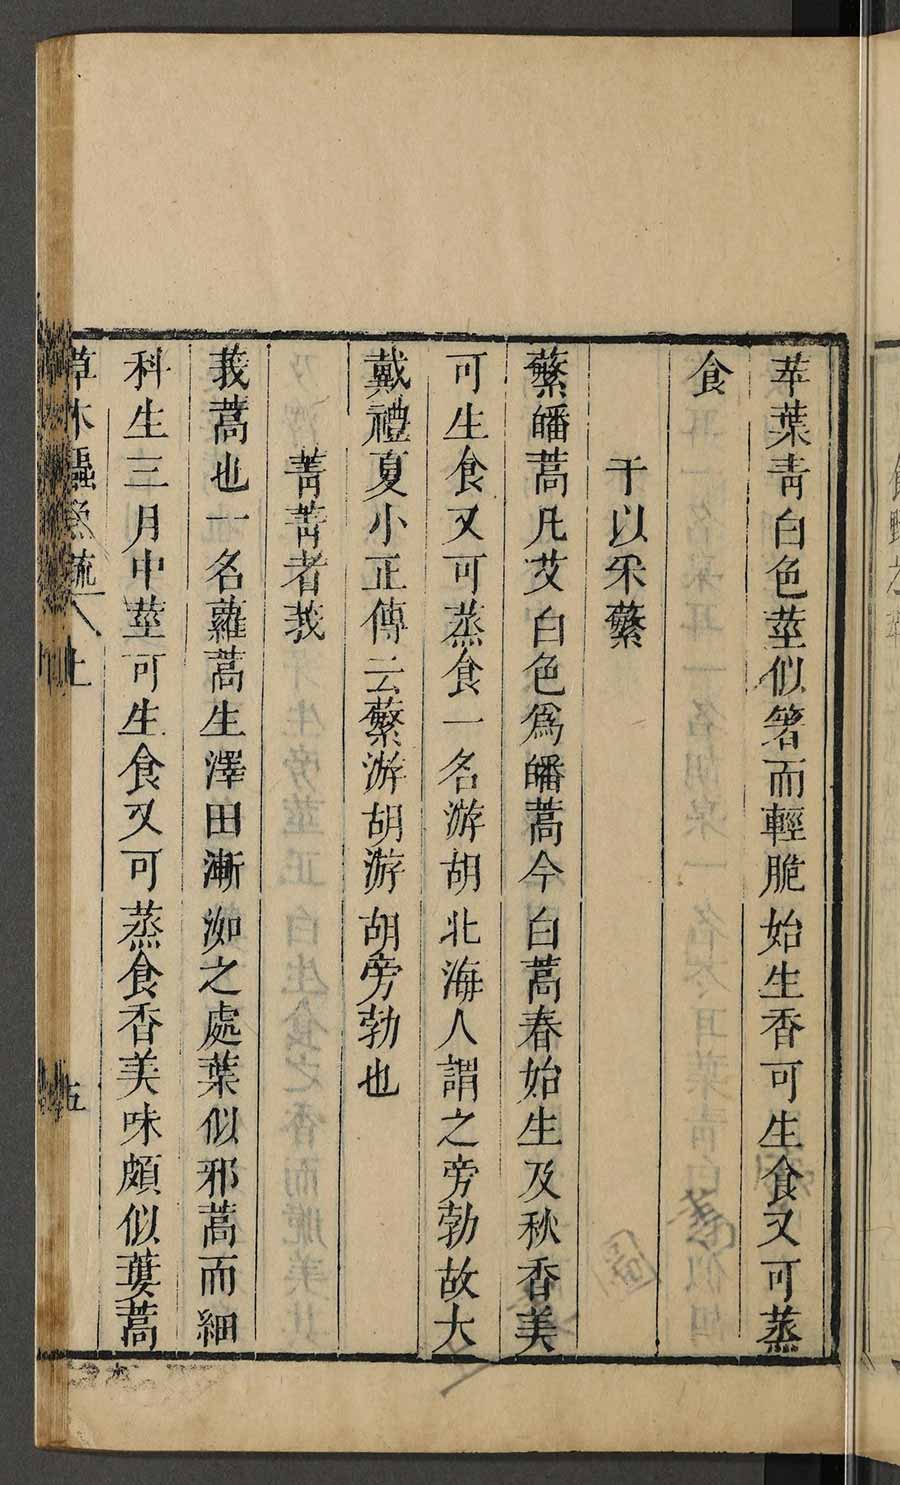 苹葉青白色莖似箸而輕脆始生香可生食又可蒸
食
于以采蘩
蘩皤蒿凡艾白色爲皤蒿今白蒿春始生及秋香美
可生食又可蒸食一名游胡北海人謂之旁勃故大
戴禮夏小正傳云蘩游胡游胡旁勃也
菁菁者莪
莪蒿也一名蘿蒿生澤田漸洳之處葉似邪蒿而細
科生三月中莖可生食又可蒸食香美味頗似蔞蒿
草木蟲魚疏 上 五